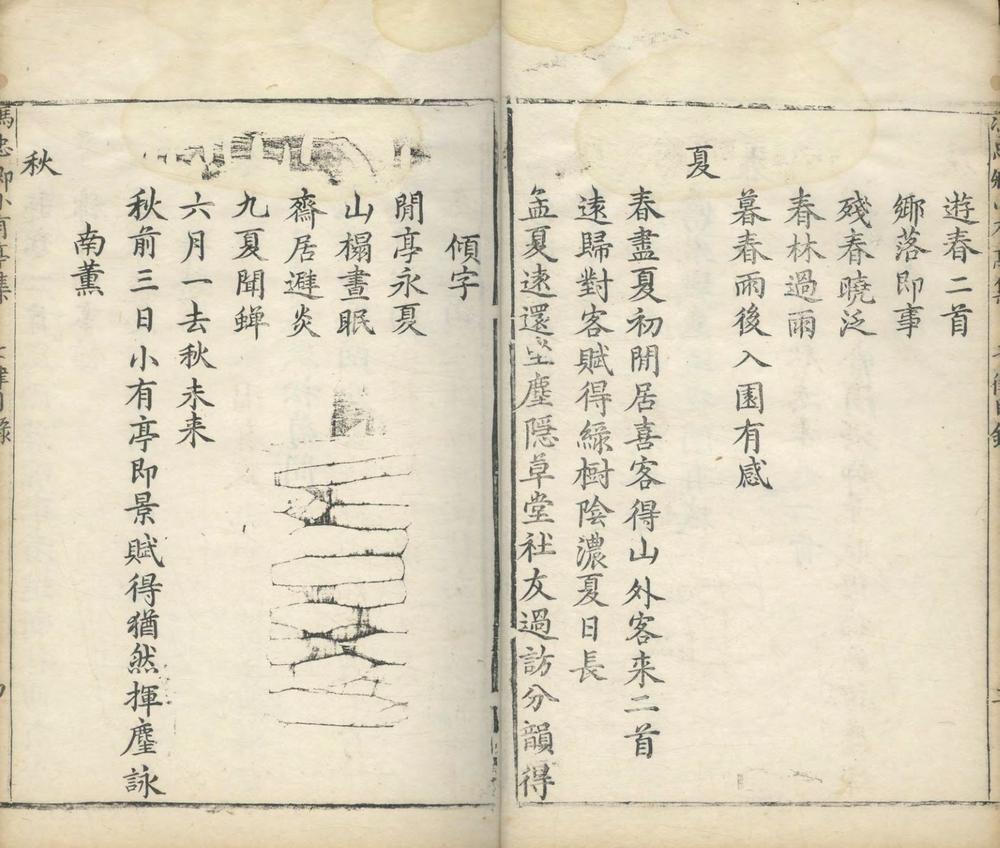 遊春二首
鄉落即事
殘春曉泛
春林過雨
暮春雨後入園有感
夏
春盡夏初閒居喜客得山外客來二首
遠歸對客賦得綠樹陰濃夏日長
孟夏遠還坐塵隱草堂社友過訪分韻得
傾字
閒亭永夏
山榻晝眠
齋居避炎
九夏聞蟬
六月一去秋未来
秋前三日小有亭即景賦得猶然揮麈詠
南薰
秋
馮忠卿小有亭集
律目錄